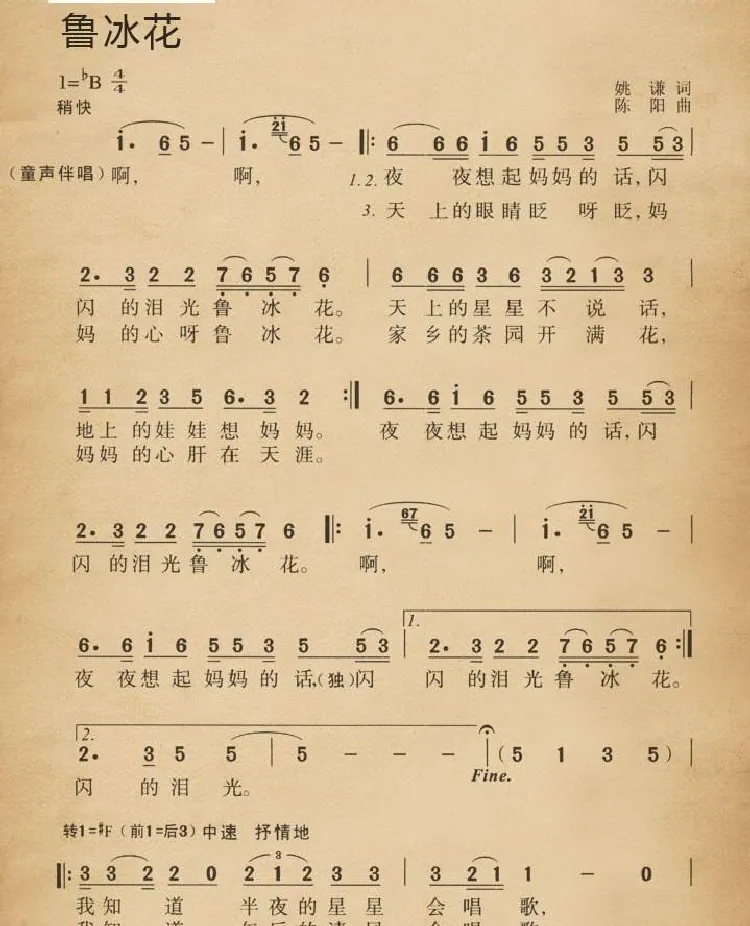 鲁冰花
1=♭B 4/4
姚谦词
稍快
陈阳曲
i. 6 5 - | i. 2i 6 5 - |: 6 6 6 i 6 5 5 3 5 5 3 |
(童声伴唱)啊, 啊, 1.2. 夜 夜想起妈妈的话,闪
3. 天上的眼睛眨呀眨,妈
2. 3 2 2 7 6 5 7 6 | 6 6 6 3 6 3 2 1 3 3 |
闪的泪光鲁冰花。 天上的星星不说话,
妈的心呀鲁冰花。 家乡的茶园开满花,
1 1 2 3 5 6. 3 2 :| 6. 6 i 6 5 5 3 5 5 3 |
地上的娃娃想妈妈。 夜夜想起妈妈的话,闪
妈妈的心肝在天涯。
2. 3 2 2 7 6 5 7 6 |: i. 67 6 5 - | i. 2i 6 5 - |
闪的泪光鲁冰花。 啊, 啊,
1.
6. 6 i 6 5 5 3 5 5 3 | 2. 3 2 2 7 6 5 7 6 :|
夜夜想起妈妈的话,(独)闪 闪的泪光鲁冰花。
2.
2. 3 5 5 | 5 - - - | (5 1 3 5) |
闪的泪光。 Fine.
转1=#F(前1=后3)中速 抒情地
|: 3 3 2 2 0 2 1 2 3 3 | 3 2 1 1 - 0 |
我知道 半夜的星星会唱歌,